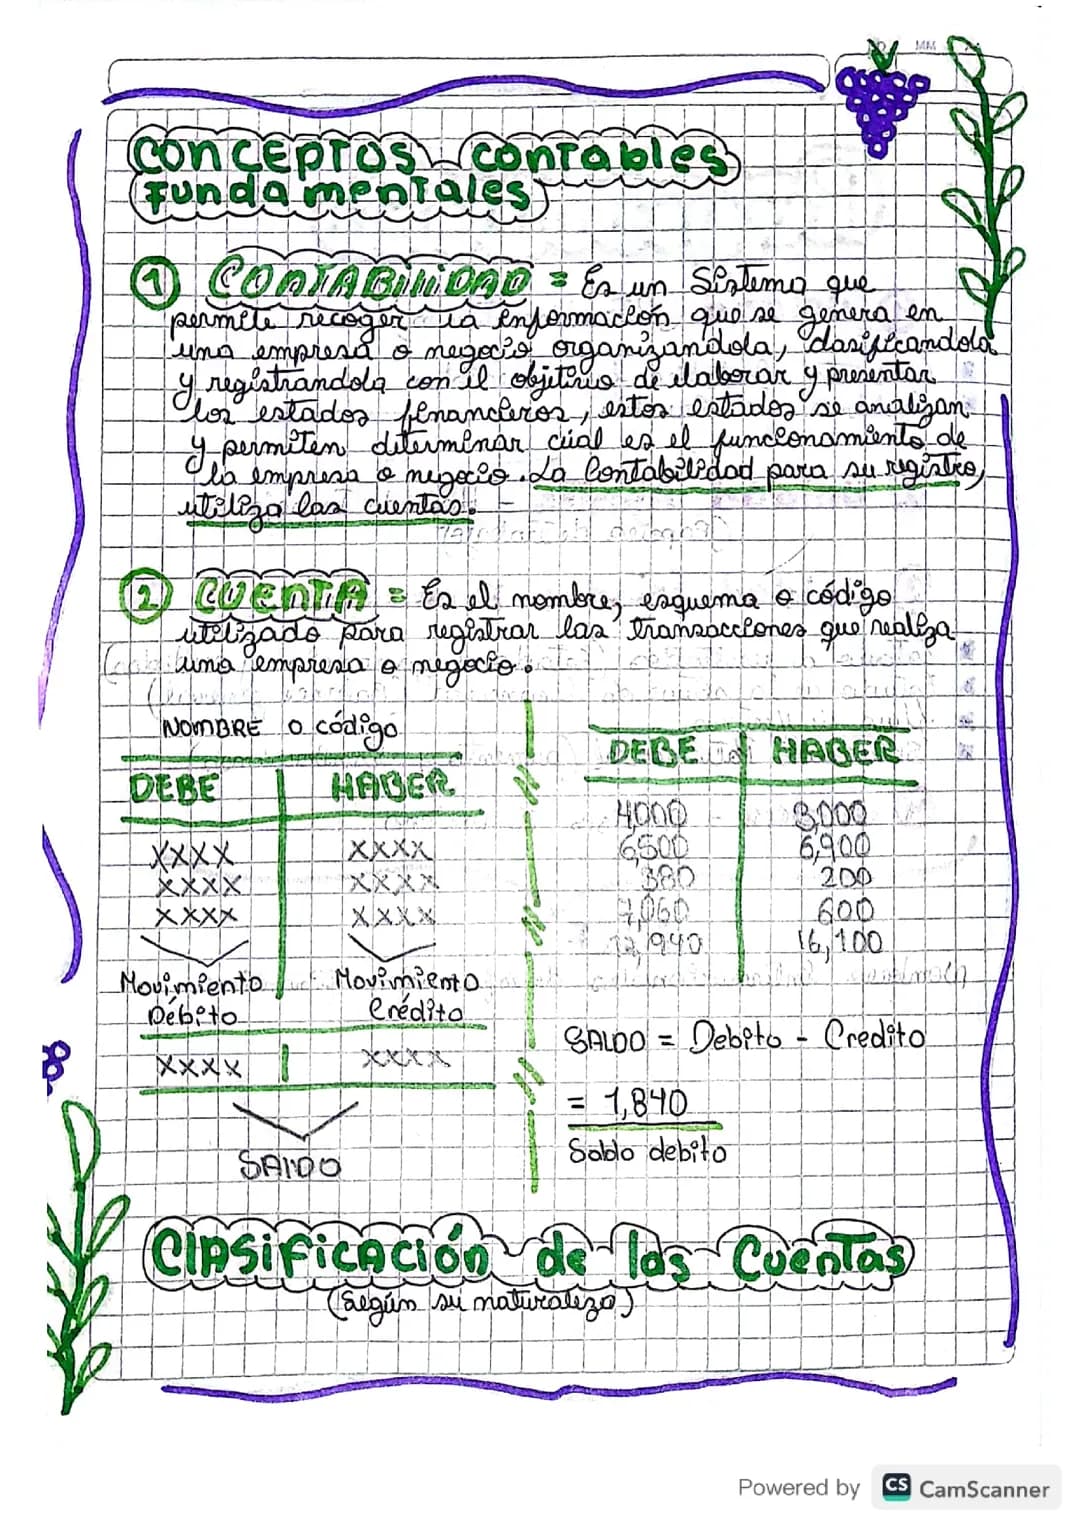 MM
CONCEPTOS CONTABLES
FUNDAMENTALES
1 CONTABILIDAD = Es un Sistema que
permite recoger la información que se genera en
una empresa o negocio organizandola, clasificandola
y registrandola con el objetivo de elaborar y presentar
los estados financieros, estos estados se analizan
y permiten determinar cúal es el funcionamiento de
la empresa o negocio. La Contabilidad para su registro,
utiliza las cuentas.
2 CUENTA = Es el nombre, esquema o código
utilizado para registrar las transacciones que realiza
una empresa o negocio.
NOMBRE o código
DEBE HABER
XXXX XXXX
XXXX XXXX
XXXX XXXX
Movimiento Movimiento
Débito Crédito
XXXX XXXX
SALDO
DEBE HABER
4,000
6,500 6,900
380 200
7,060 600
16,100
SALDO = Debito - Credito
= 1,840
Saldo debito
Clasificación de las Cuentas
(Según su naturaleza)
Powered by CS CamScanner